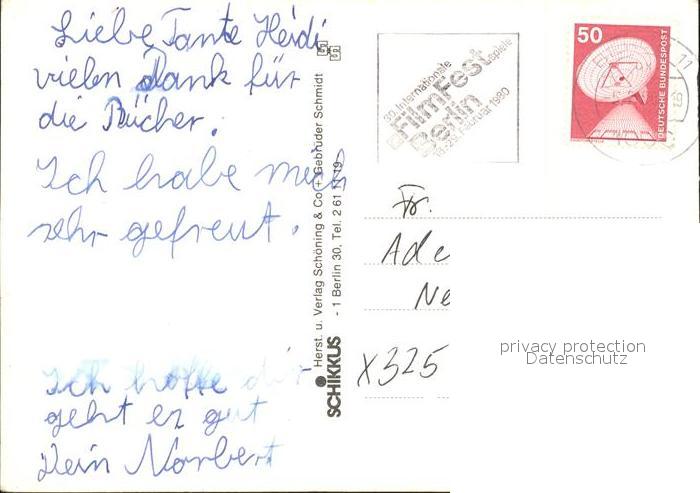 Liebe Tante Heidi
vielen Dank für
die Bücher.
Ich habe mich
sehr gefreut.
Ich hoffe dir
geht es gut
Dein Norbert
Herst. u. Verlag Schöning & Co + Gebrüder Schmidt
- 1 Berlin 30, Tel. 2 61 11 19
SCHIKKUS
30. Internationale
FilmFestspiele
Berlin
18.-29. Februar 1980
50
DEUTSCHE BUNDESPOST
11
Fr.
Ade
Ne
X325
privacy protection
Datenschutz